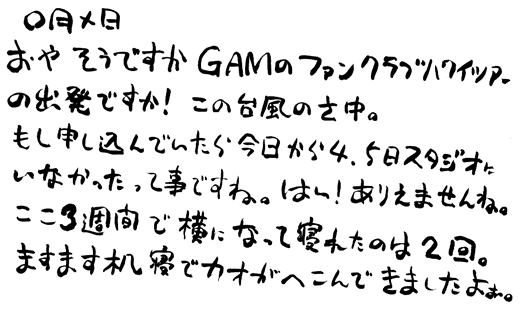 〇月×日
おや そうですか GAMのファンクラブハワイツアー
の出発ですか! この台風のさ中。
もし申し込んでいたら今日から4、5日スタジオに
いなかったって事ですね。はい! ありえませんね。
ここ3週間で横になって寝れたのは2回。
ますます机寝でカオがへこんできましたよぉ。